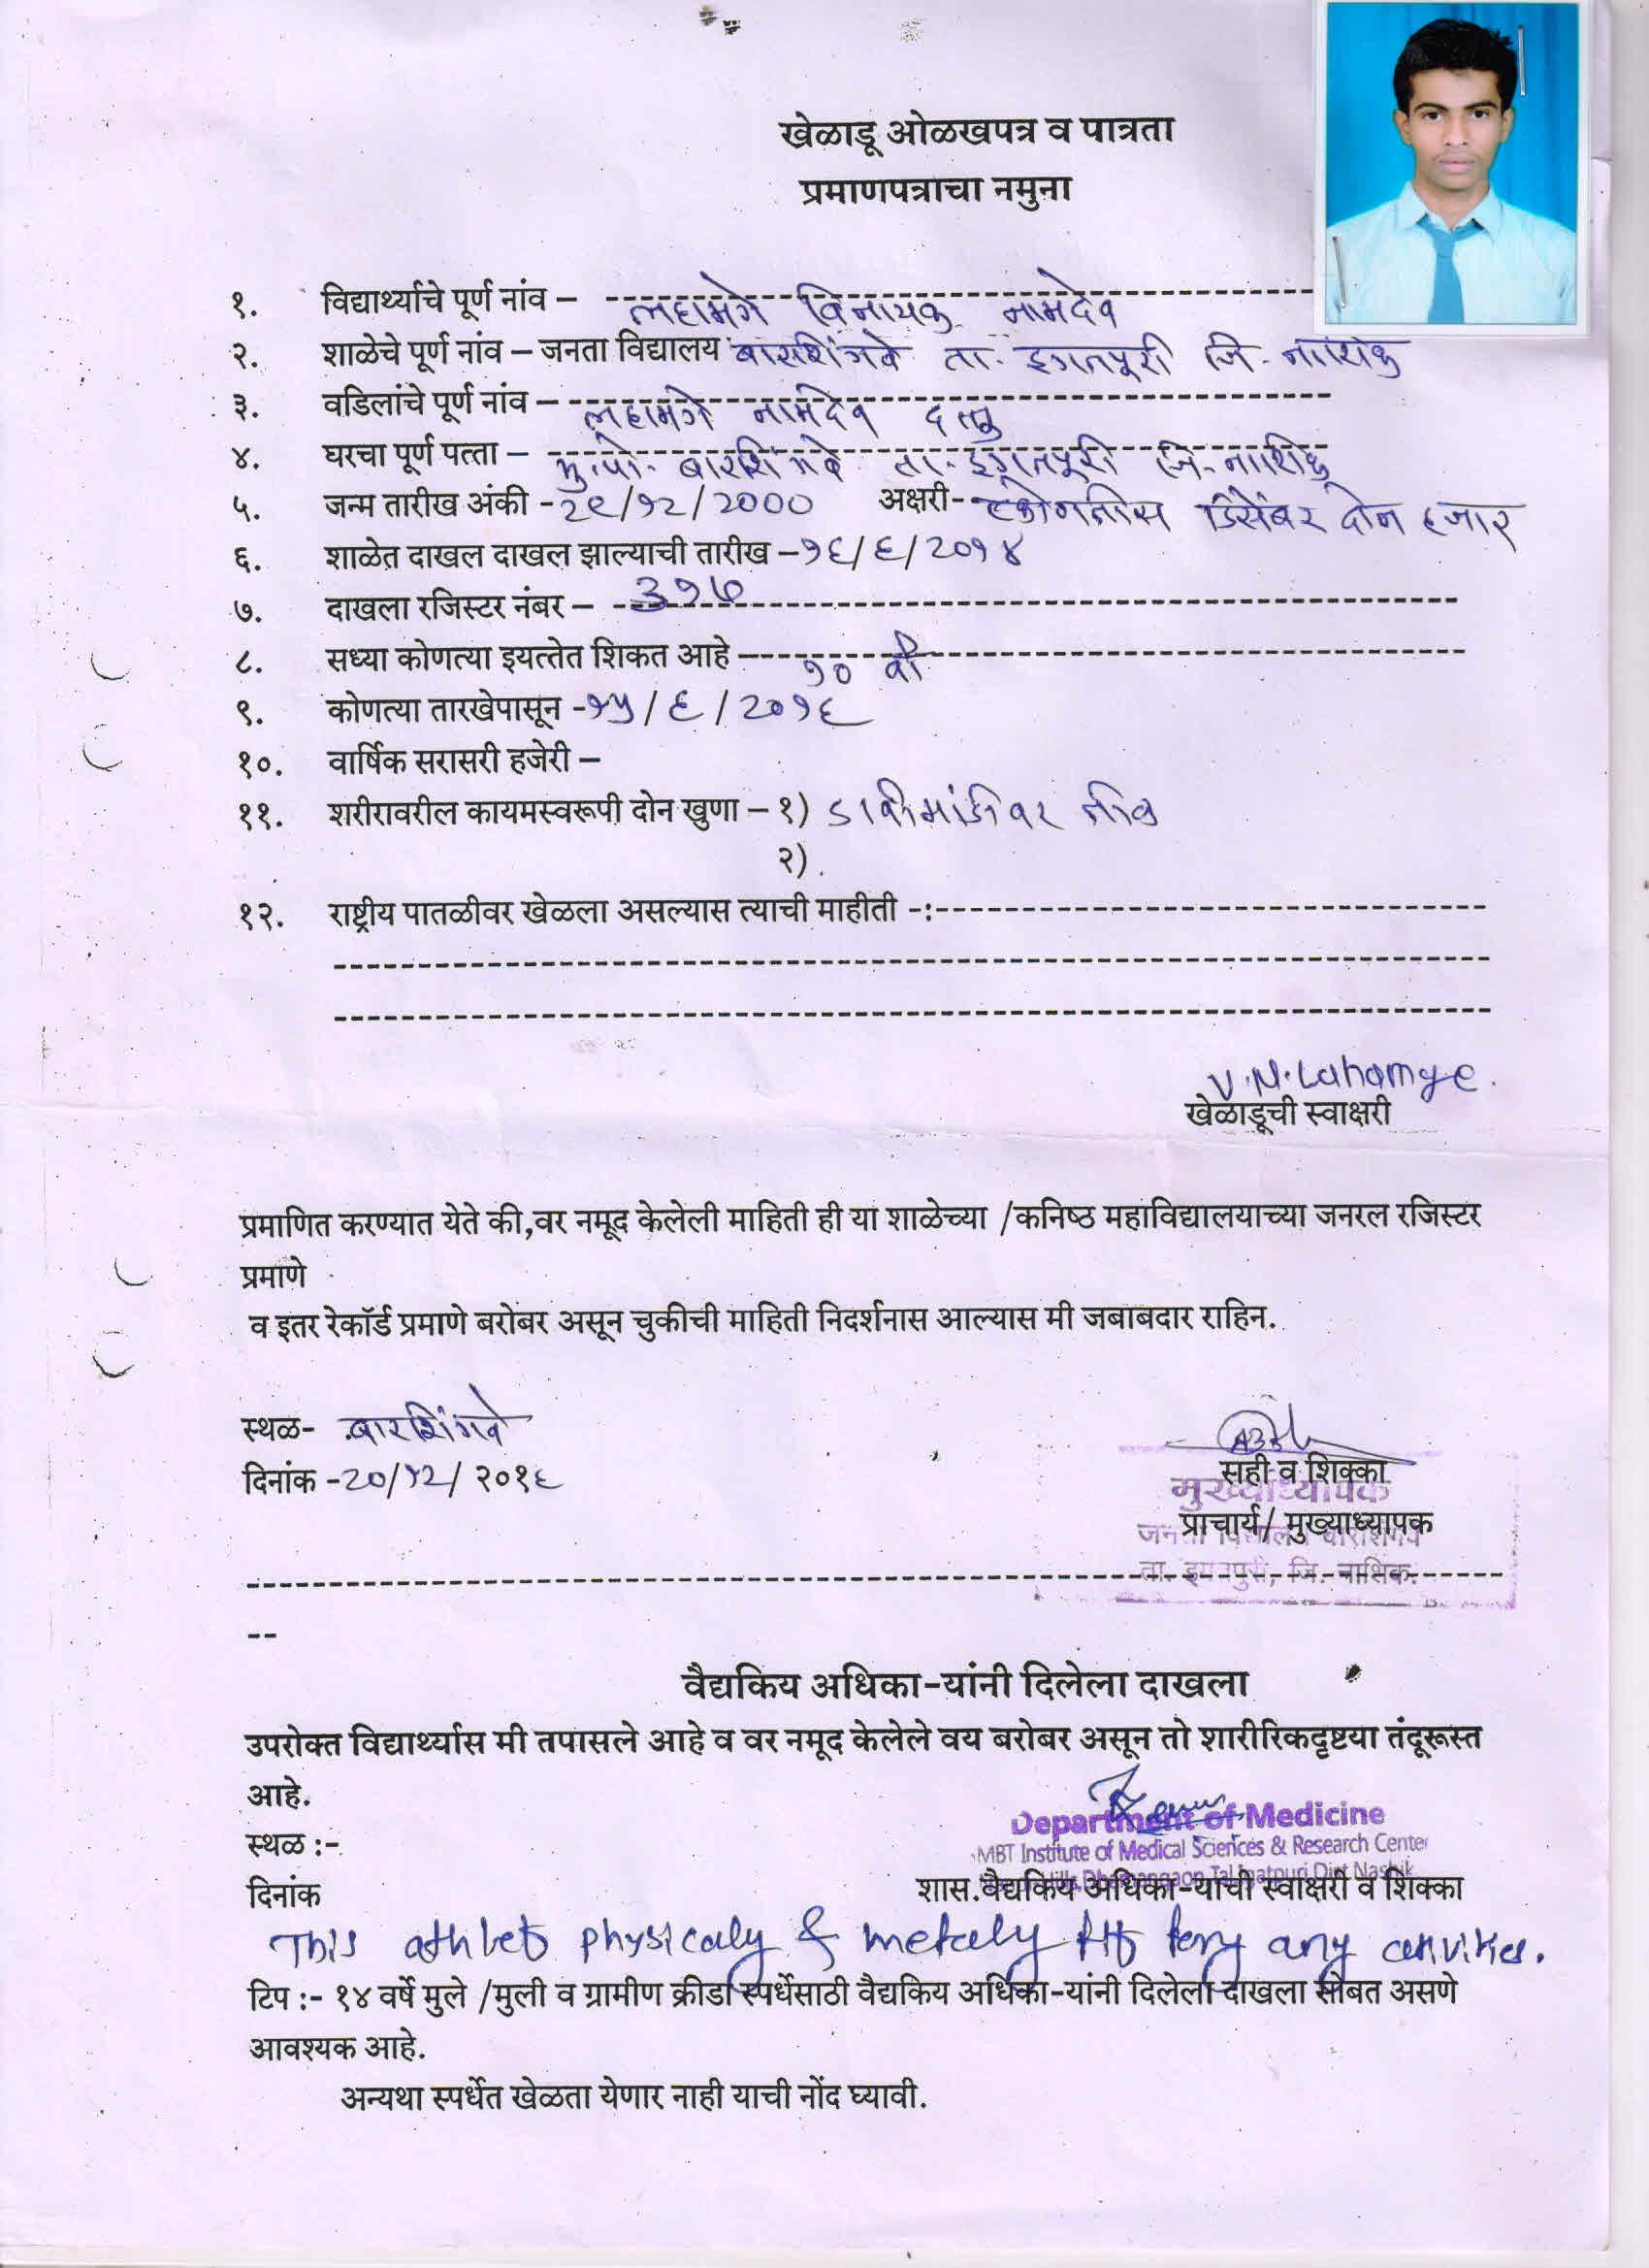 खेळाडू ओळखपत्र व पात्रता
प्रमाणपत्राचा नमुना
१. विद्यार्थ्याचे पूर्ण नांव – लहामगे विनायक नामदेव
२. शाळेचे पूर्ण नांव – जनता विद्यालय बारशिंगवे ता. इगतपूरी जि. नाशिक
३. वडिलांचे पूर्ण नांव – लहामगे नामदेव दत्तु
४. घरचा पूर्ण पत्ता – मु.पो. बारशिंगवे ता. इगतपूरी जि. नाशिक
५. जन्म तारीख अंकी - २९/१२/2000 अक्षरी- एकोणतीस डिसेंबर दोन हजार
६. शाळेत दाखल दाखल झाल्याची तारीख – १६/६/२०१४
७. दाखला रजिस्टर नंबर – ३१७
८. सध्या कोणत्या इयत्तेत शिकत आहे – १० वी
९. कोणत्या तारखेपासून - १५/६/२०१६
१०. वार्षिक सरासरी हजेरी –
११. शरीरावरील कायमस्वरूपी दोन खुणा – १) डावी मांडीवर तीळ
२).
१२. राष्ट्रीय पातळीवर खेळला असल्यास त्याची माहीती -:-
V.N.Lahamge.
खेळाडूची स्वाक्षरी
प्रमाणित करण्यात येते की,वर नमूद केलेली माहिती ही या शाळेच्या /कनिष्ठ महाविद्यालयाच्या जनरल रजिस्टर
प्रमाणे
व इतर रेकॉर्ड प्रमाणे बरोबर असून चुकीची माहिती निदर्शनास आल्यास मी जबाबदार राहिन.
स्थळ- बारशिंगवे
दिनांक -20/१२/२०१६
सही व शिक्का
मुख्याध्यापक
प्राचार्य/ मुख्याध्यापक
जनता विद्यालय बारशिंगवे
ता. इगतपुरी, जि. नाशिक.
वैद्यकिय अधिका-यांनी दिलेला दाखला
उपरोक्त विद्यार्थ्यास मी तपासले आहे व वर नमूद केलेले वय बरोबर असून तो शारीरिकदृष्टया तंदूरूस्त
आहे.
Department of Medicine
स्थळ :-
MBT Institute of Medical Sciences & Research Center
Hills, Dhamangaon, Tal. Igatpuri Dist Nashik
दिनांक
शास.वैद्यकिय अधिका-यांची स्वाक्षरी व शिक्का
This athlet physicaly & metaly fit any
टिप :- १४ वर्षे मुले /मुली व ग्रामीण क्रीडा स्पर्धेसाठी वैद्यकिय अधिका-यांनी दिलेला दाखला सोबत असणे
आवश्यक आहे.
अन्यथा स्पर्धेत खेळता येणार नाही याची नोंद घ्यावी.